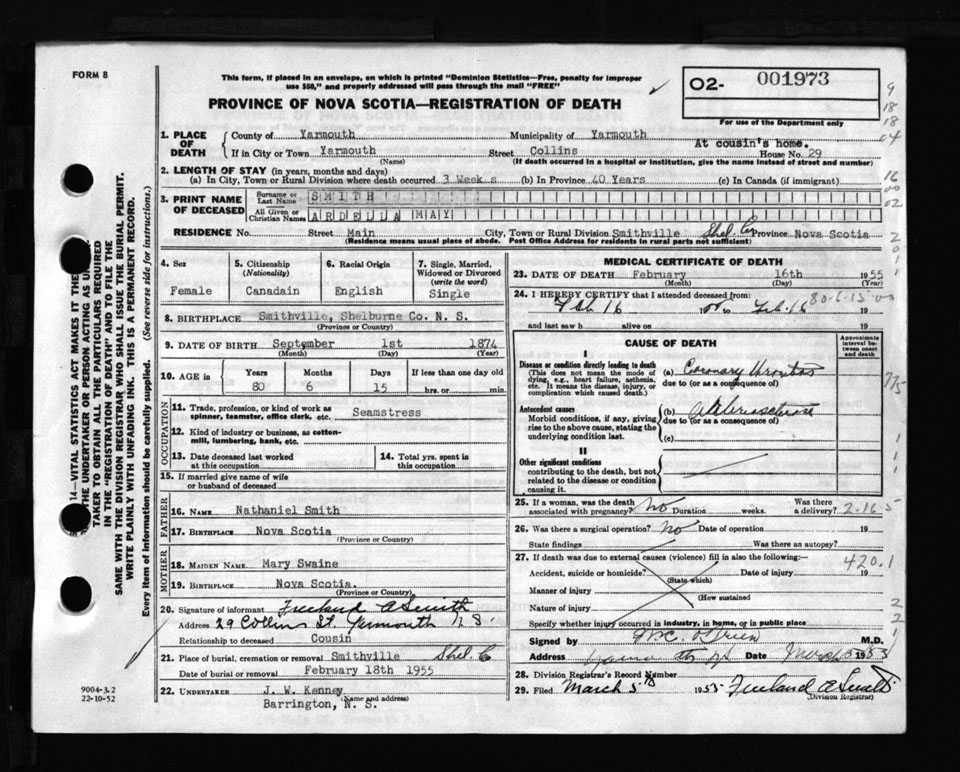 FORM 8
This form, if placed in an envelope, on which is printed "Dominion Statistics—Free, penalty for improper
use $50," and properly addressed will pass through the mail "FREE"
O2- 001973
For use of the Department only
PROVINCE OF NOVA SCOTIA—REGISTRATION OF DEATH
1. PLACE OF DEATH
County of Yarmouth Municipality of Yarmouth
At cousin's home.
If in City or Town Yarmouth Street Collins House No. 29
(Name) (If death occurred in a hospital or institution, give the name instead of street and number)
2. LENGTH OF STAY (in years, months and days)
(a) In City, Town or Rural Division where death occurred 3 Week s (b) In Province 40 Years (c) In Canada (if immigrant)
3. PRINT NAME OF DECEASED
Surname or Last Name SMITH
All Given or Christian Names ARDELIA MAY
RESIDENCE No. Street Main City, Town or Rural Division Smithville Shel. Co Province Nova Scotia
(Residence means usual place of abode. Post Office Address for residents in rural parts not sufficient)
4. Sex
Female
5. Citizenship
(Nationality)
Canadain
6. Racial Origin
English
7. Single, Married,
Widowed or Divorced
(write the word)
Single
8. BIRTHPLACE Smithville, Shelburne Co. N. S.
(Province or Country)
9. DATE OF BIRTH September 1st 1874
(Month) (Day) (Year)
10. AGE in Years Months Days If less than one day old
80 6 15 hrs. or min.
OCCUPATION
11. Trade, profession, or kind of work as
spinner, teamster, office clerk, etc. Seamstress
12. Kind of industry or business, as cotton-
mill, lumbering, bank, etc.
13. Date deceased last worked
at this occupation
14. Total yrs. spent in
this occupation
15. If married give name of wife
or husband of deceased
FATHER
16. NAME Nathaniel Smith
17. BIRTHPLACE Nova Scotia
(Province or Country)
MOTHER
18. MAIDEN NAME Mary Swaine
19. BIRTHPLACE Nova Scotia.
(Province or Country)
20. Signature of informant Freeland A Smith
Address 29 Collins St. Yarmouth N.S.
Relationship to deceased Cousin
21. Place of burial, cremation or removal Smithville Shel. C
Date of burial or removal February 18th 1955
22. UNDERTAKER J. W. Kenney
(Name and address)
Barrington, N. S.
MEDICAL CERTIFICATE OF DEATH
23. DATE OF DEATH February 16th 1955
(Month) (Day)
24. I HEREBY CERTIFY that I attended deceased from:
Feb 16 19 to Feb. 16 19
80-6-15
and last saw h alive on 19
CAUSE OF DEATH
Approximate interval between onset and death
I
Disease or condition directly leading to death
(This does not mean the mode of
dying, e.g., heart failure, asthenia,
etc. It means the disease, injury, or
complication which caused death.)
(a) Coronary thrombosis
due to (or as a consequence of)
Antecedent causes
Morbid conditions, if any, giving
rise to the above cause, stating the
underlying condition last.
(b)
due to (or as a consequence of)
(c)
II
Other significant conditions
contributing to the death, but not
related to the disease or condition
causing it.
25. If a woman, was the death
associated with pregnancy? No Duration weeks. Was there
a delivery? 2-16-5
26. Was there a surgical operation? No Date of operation 19
State findings Was there an autopsy?
27. If death was due to external causes (violence) fill in also the following:—
Accident, suicide or homicide? Date of injury 19
420.1
(State which)
Manner of injury
(How sustained
Nature of injury
Specify whether injury occurred in industry, in home, or in public place
Signed by O'Brien M.D.
Address Yarmouth NS Date March 1955
28. Division Registrar's Record Number
29. Filed March 5th 1955 Freeland A Smith
(Division Registrar)
14—VITAL STATISTICS ACT MAKES IT THE
THE UNDERTAKER OR PERSON ACTING AS
TAKER TO OBTAIN ALL THE PARTICULARS REQUIRED
IN THE "REGISTRATION OF DEATH" AND TO FILE THE
SAME WITH THE DIVISION REGISTRAR WHO SHALL ISSUE THE BURIAL PERMIT.
WRITE PLAINLY WITH UNFADING INK. THIS IS A PERMANENT RECORD.
Every item of information should be carefully supplied. (See reverse side for instructions.)
9004-3.2
22-10-52
9
18
18
04
16
00
02
775